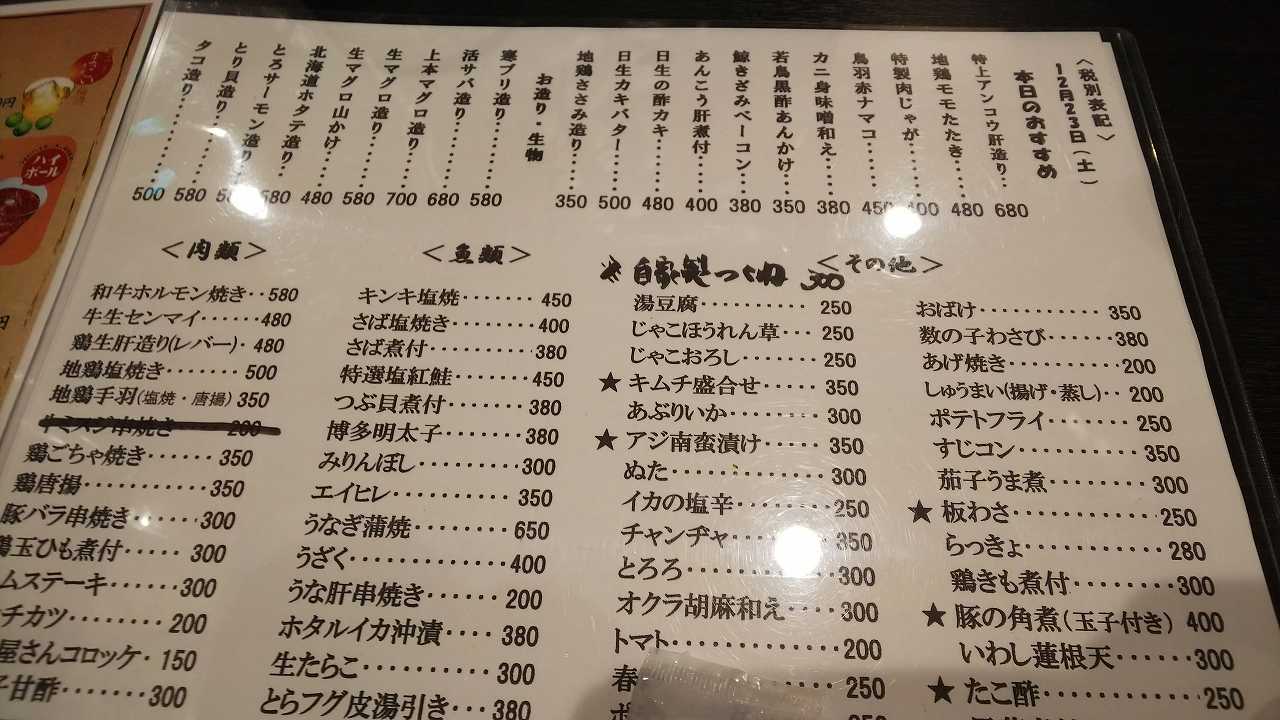 <税別表記>
12月23日(土)
本日のおすすめ
特上アンコウ肝造り‥680
地鶏モモたたき‥‥480
特製肉じゃが‥‥‥400
鳥羽赤ナマコ‥‥‥450
カニ身味噌和え‥‥380
若鳥黒酢あんかけ‥350
鯨きざみベーコン‥380
あんこう肝煮付‥‥400
日生の酢カキ‥‥‥480
日生カキバター‥‥500
地鶏ささみ造り‥‥350
お造り・生物
寒ブリ造り‥‥‥580
活サバ造り‥‥‥680
上本マグロ造り‥700
生マグロ造り‥‥580
生マグロ山かけ‥480
北海道ホタテ造り‥580
とろサーモン造り‥580
とり貝造り‥‥‥580
タコ造り‥‥‥‥500
<肉類>
和牛ホルモン焼き‥580
牛生センマイ‥‥‥480
鶏生肝造り(レバー)・480
地鶏塩焼き‥‥‥‥500
地鶏手羽(塩焼・唐揚)350
牛ミスジ串焼き 200
鶏ごちゃ焼き‥‥‥350
鶏唐揚‥‥‥‥‥‥350
豚バラ串焼き‥‥‥300
鶏玉ひも煮付‥‥‥300
ムステーキ‥‥‥‥300
チカツ‥‥‥‥‥‥200
屋さんコロッケ・150
甘酢‥‥‥‥‥‥‥300
<魚類>
キンキ塩焼‥‥‥‥450
さば塩焼き‥‥‥‥400
さば煮付‥‥‥‥‥380
特選塩紅鮭‥‥‥‥450
つぶ貝煮付‥‥‥‥380
博多明太子‥‥‥‥380
みりんぼし‥‥‥‥300
エイヒレ‥‥‥‥‥350
うなぎ蒲焼‥‥‥‥650
うざく‥‥‥‥‥‥400
うな肝串焼き‥‥‥200
ホタルイカ沖漬‥‥380
生たらこ‥‥‥‥‥300
とらフグ皮湯引き‥380
<その他>
自家製つくね 300
湯豆腐‥‥‥‥‥‥250
じゃこほうれん草‥250
じゃこおろし‥‥‥250
★キムチ盛合せ‥‥350
あぶりいか‥‥‥‥300
★アジ南蛮漬け‥‥350
ぬた‥‥‥‥‥‥‥300
イカの塩辛‥‥‥‥250
チャンヂャ‥‥‥‥350
とろろ‥‥‥‥‥‥300
オクラ胡麻和え‥‥300
トマト‥‥‥‥‥‥200
春 250
ポ 250
おばけ‥‥‥‥‥‥350
数の子わさび‥‥‥380
あげ焼き‥‥‥‥‥200
しゅうまい(揚げ・蒸し)‥200
ポテトフライ‥‥‥250
すじコン‥‥‥‥‥350
茄子うま煮‥‥‥‥300
★板わさ‥‥‥‥‥250
らっきょ‥‥‥‥‥280
鶏きも煮付‥‥‥‥300
★豚の角煮(玉子付き)400
いわし蓮根天‥‥‥300
★たこ酢‥‥‥‥‥250
ハイボール